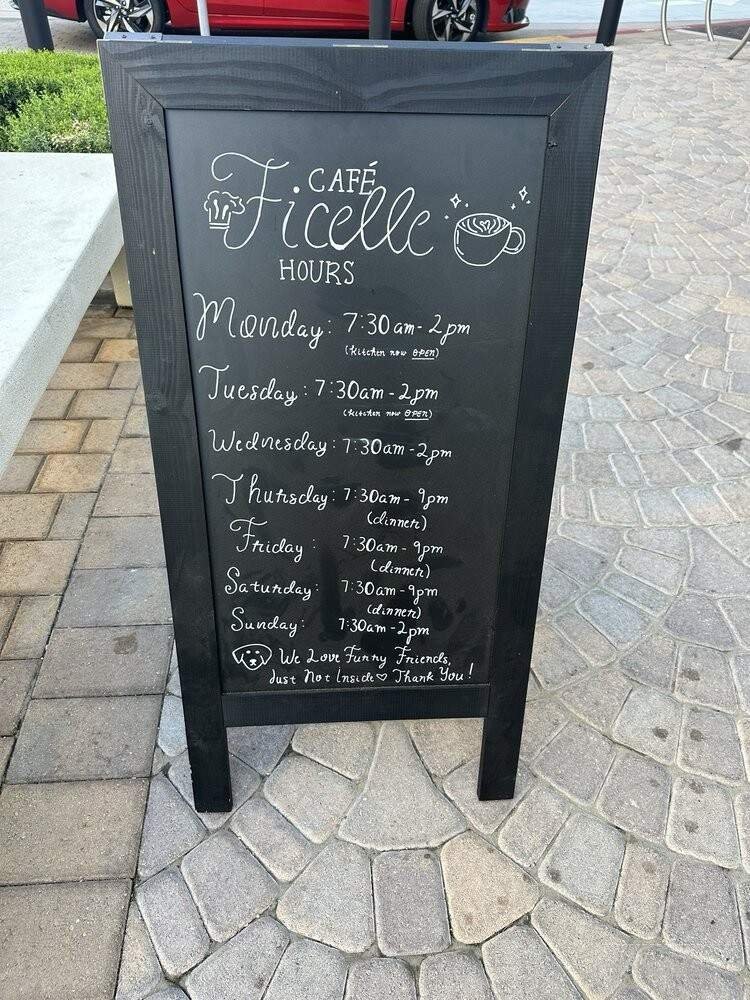 CAFÉ
Ficelle
HOURS
Monday: 7:30am - 2pm
(Kitchen now OPEN)
Tuesday: 7:30am - 2pm
(Kitchen now OPEN)
Wednesday: 7:30am - 2pm
Thursday: 7:30am - 9pm
(dinner)
Friday: 7:30am - 9pm
(dinner)
Saturday: 7:30am - 9pm
(dinner)
Sunday: 7:30am - 2pm
We Love Furry Friends,
Just Not Inside♡ Thank You!